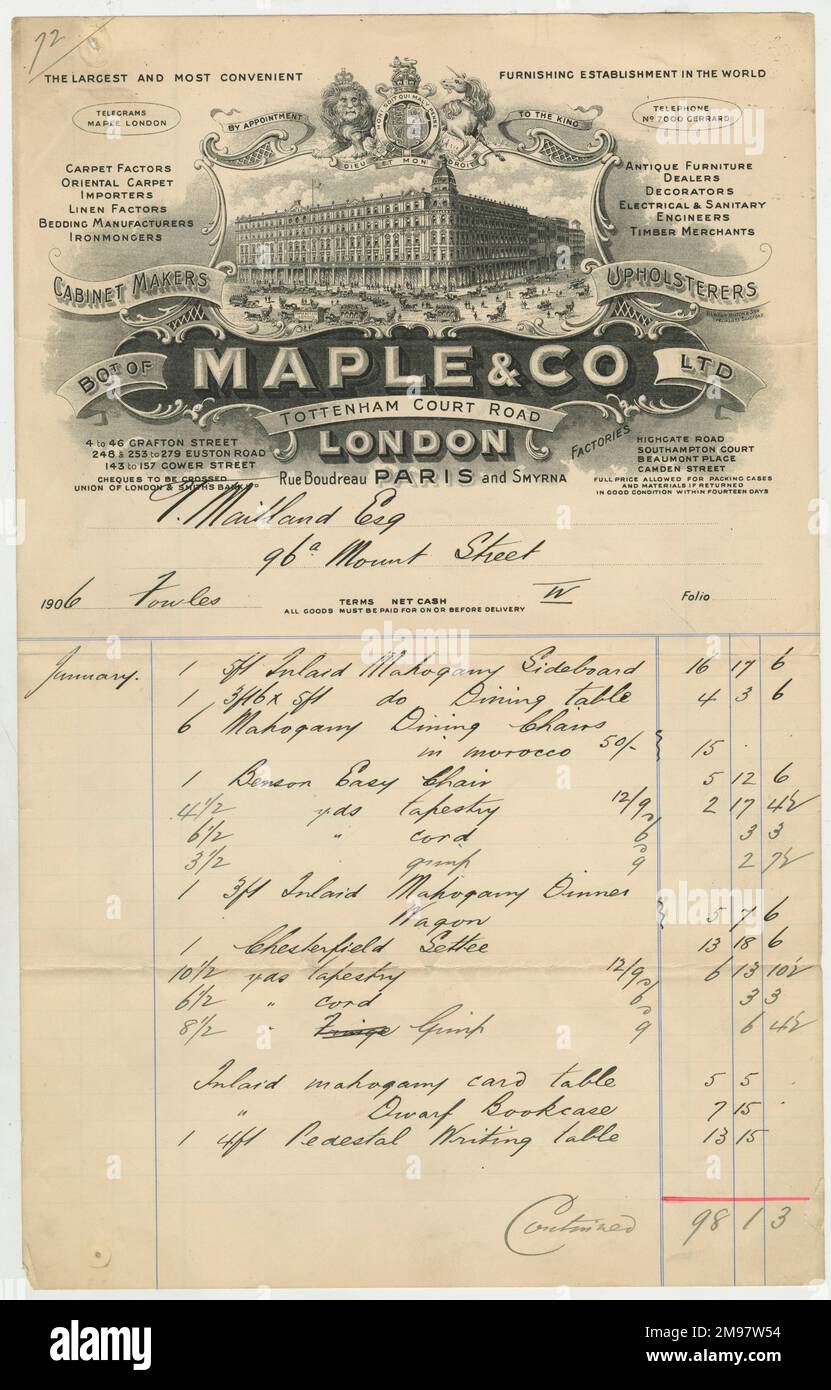 72
THE LARGEST AND MOST CONVENIENT FURNISHING ESTABLISHMENT IN THE WORLD
TELEGRAMS
MAPLE LONDON
BY APPOINTMENT
HONI SOIT QUI MAL Y PENSE
DIEU ET MON DROIT
TO THE KING
TELEPHONE
No 7000 GERRARD
CARPET FACTORS
ORIENTAL CARPET
IMPORTERS
LINEN FACTORS
BEDDING MANUFACTURERS
IRONMONGERS
ANTIQUE FURNITURE
DEALERS
DECORATORS
ELECTRICAL & SANITARY
ENGINEERS
TIMBER MERCHANTS
CABINET MAKERS
UPHOLSTERERS
BOT OF MAPLE & CO LTD
TOTTENHAM COURT ROAD
LONDON
4 to 46 GRAFTON STREET
248 & 253 to 279 EUSTON ROAD
143 to 157 GOWER STREET
CHEQUES TO BE CROSSED
UNION OF LONDON & SMITHS BANK LTD
Rue Boudreau PARIS and SMYRNA
FACTORIES
HIGHGATE ROAD
SOUTHAMPTON COURT
BEAUMONT PLACE
CAMDEN STREET
FULL PRICE ALLOWED FOR PACKING CASES
AND MATERIALS IF RETURNED
IN GOOD CONDITION WITHIN FOURTEEN DAYS
Maitland Esq
96a Mount Street
1906 Fowles TERMS NET CASH W Folio
ALL GOODS MUST BE PAID FOR ON OR BEFORE DELIVERY
January. 1 5ft Inlaid Mahogany Sideboard 16 17 6
1 3ft6 x 5ft do Dining table 4 3 6
6 Mahogany Dining Chairs
in morocco 50/- 15 . .
1 Benson Easy Chair 5 12 6
4 1/2 yds tapestry 12/9 2 17 4½
6 1/2 " cord 6 3 3
3 1/2 " gimp 9 2 7½
1 3ft Inlaid Mahogany Dinner
Wagon 5 7 6
1 Chesterfield Settee 13 18 6
10 1/2 yds tapestry 12/9 6 13 10½
6 1/2 " cord 6 3 3
8 1/2 " Fringe Gimp 9 6 4½
Inlaid mahogany card table 5 5 .
" Dwarf Bookcase 7 15 .
1 4ft Pedestal Writing table 13 15
Continued 98 1 3
alamy
Image ID: 2M97W54
www.alamy.com